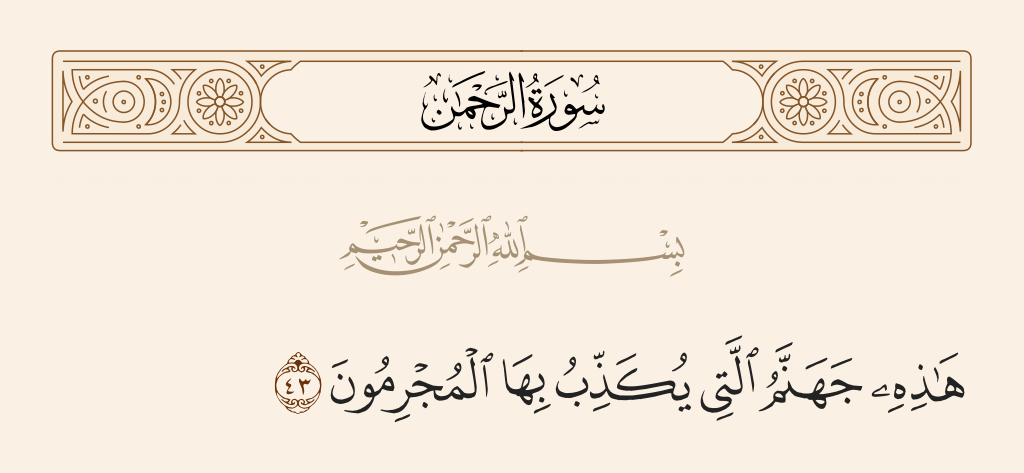 سُورَةُ الرَّحْمَٰن
بِسْمِ ٱللَّهِ ٱلرَّحْمَٰنِ ٱلرَّحِيمِ
هَـٰذِهِۦ جَهَنَّمُ ٱلَّتِى يُكَذِّبُ بِهَا ٱلْمُجْرِمُونَ ٤٣